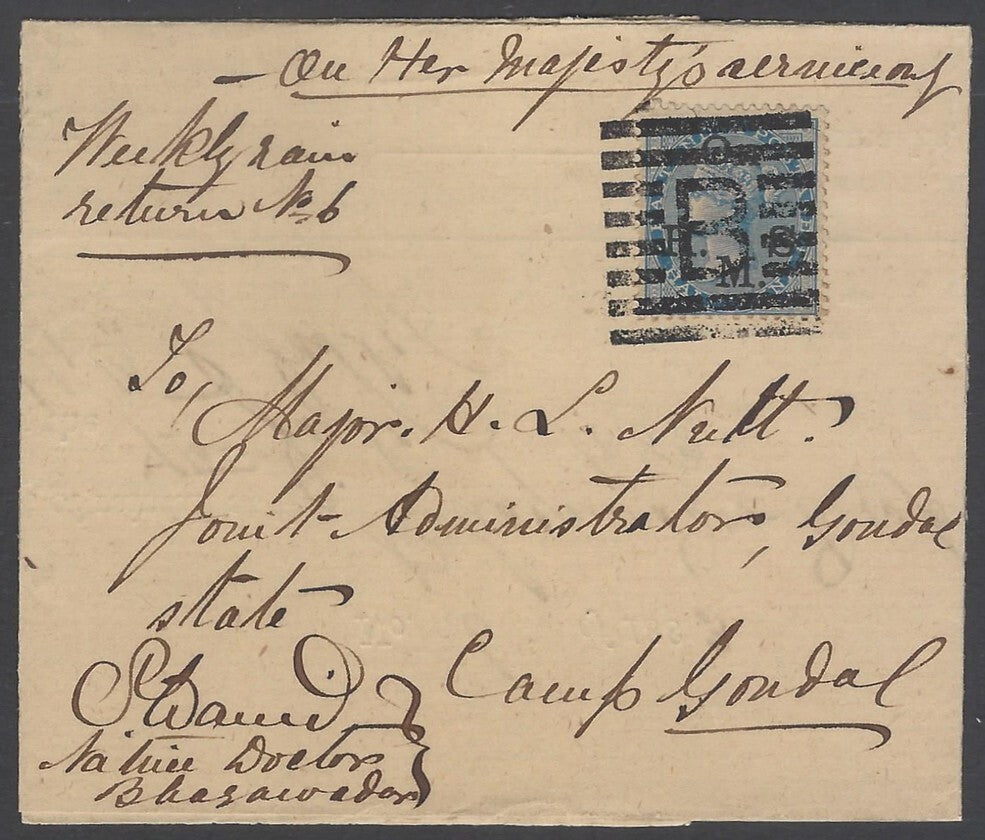 On Her Majesty's service only
Weekly rain
return No 6
O
B
H. S
M.
To,
Major. H. L. Nutt.
Joint Administrator, Gondal
state
Camp Gondal
S David
Native Doctor
Bhasawadar